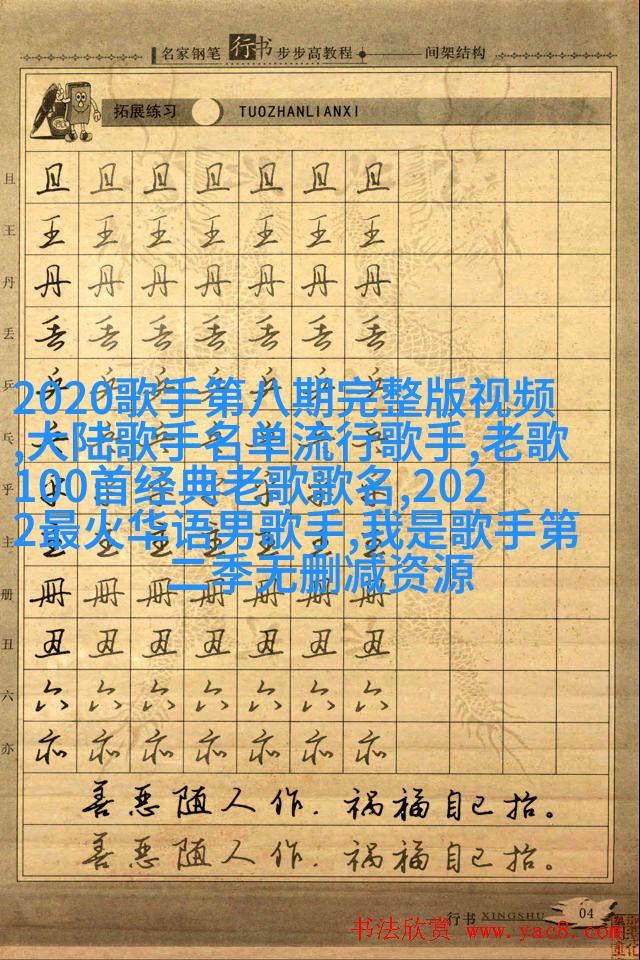 名家钢笔行书步步高教程 —— 间架结构
拓展练习 TUOZHANLIANXI
且 且 且 且 且 且 且 且
王 王 王 王 王 王 王 王
丹 丹 丹 丹 丹 丹 丹 丹
丢 丢 丢 丢 丢 丢 丢 丢
乒 乒 乒 乒 乒 乒 乒 乒
2020歌手第八期完整版视频
,大陆歌手名单流行歌手,老歌
100首经典老歌歌名,202
2最火华语男歌手,我是歌手第
二季无删减资源
乓
乎
主 主 主 主 主 主 主 主
册 册 册 册 册 册 册 册
丑 丑 丑 丑 丑 丑 丑 丑
六 六 六 六 六 六 六 六
亦 亦 亦 亦 亦 亦 亦 亦
善恶随人作.祸福自己招。
善恶随人作.祸福自己招。
行书 XINGSHU 04
书法欣赏 www.yac8.com